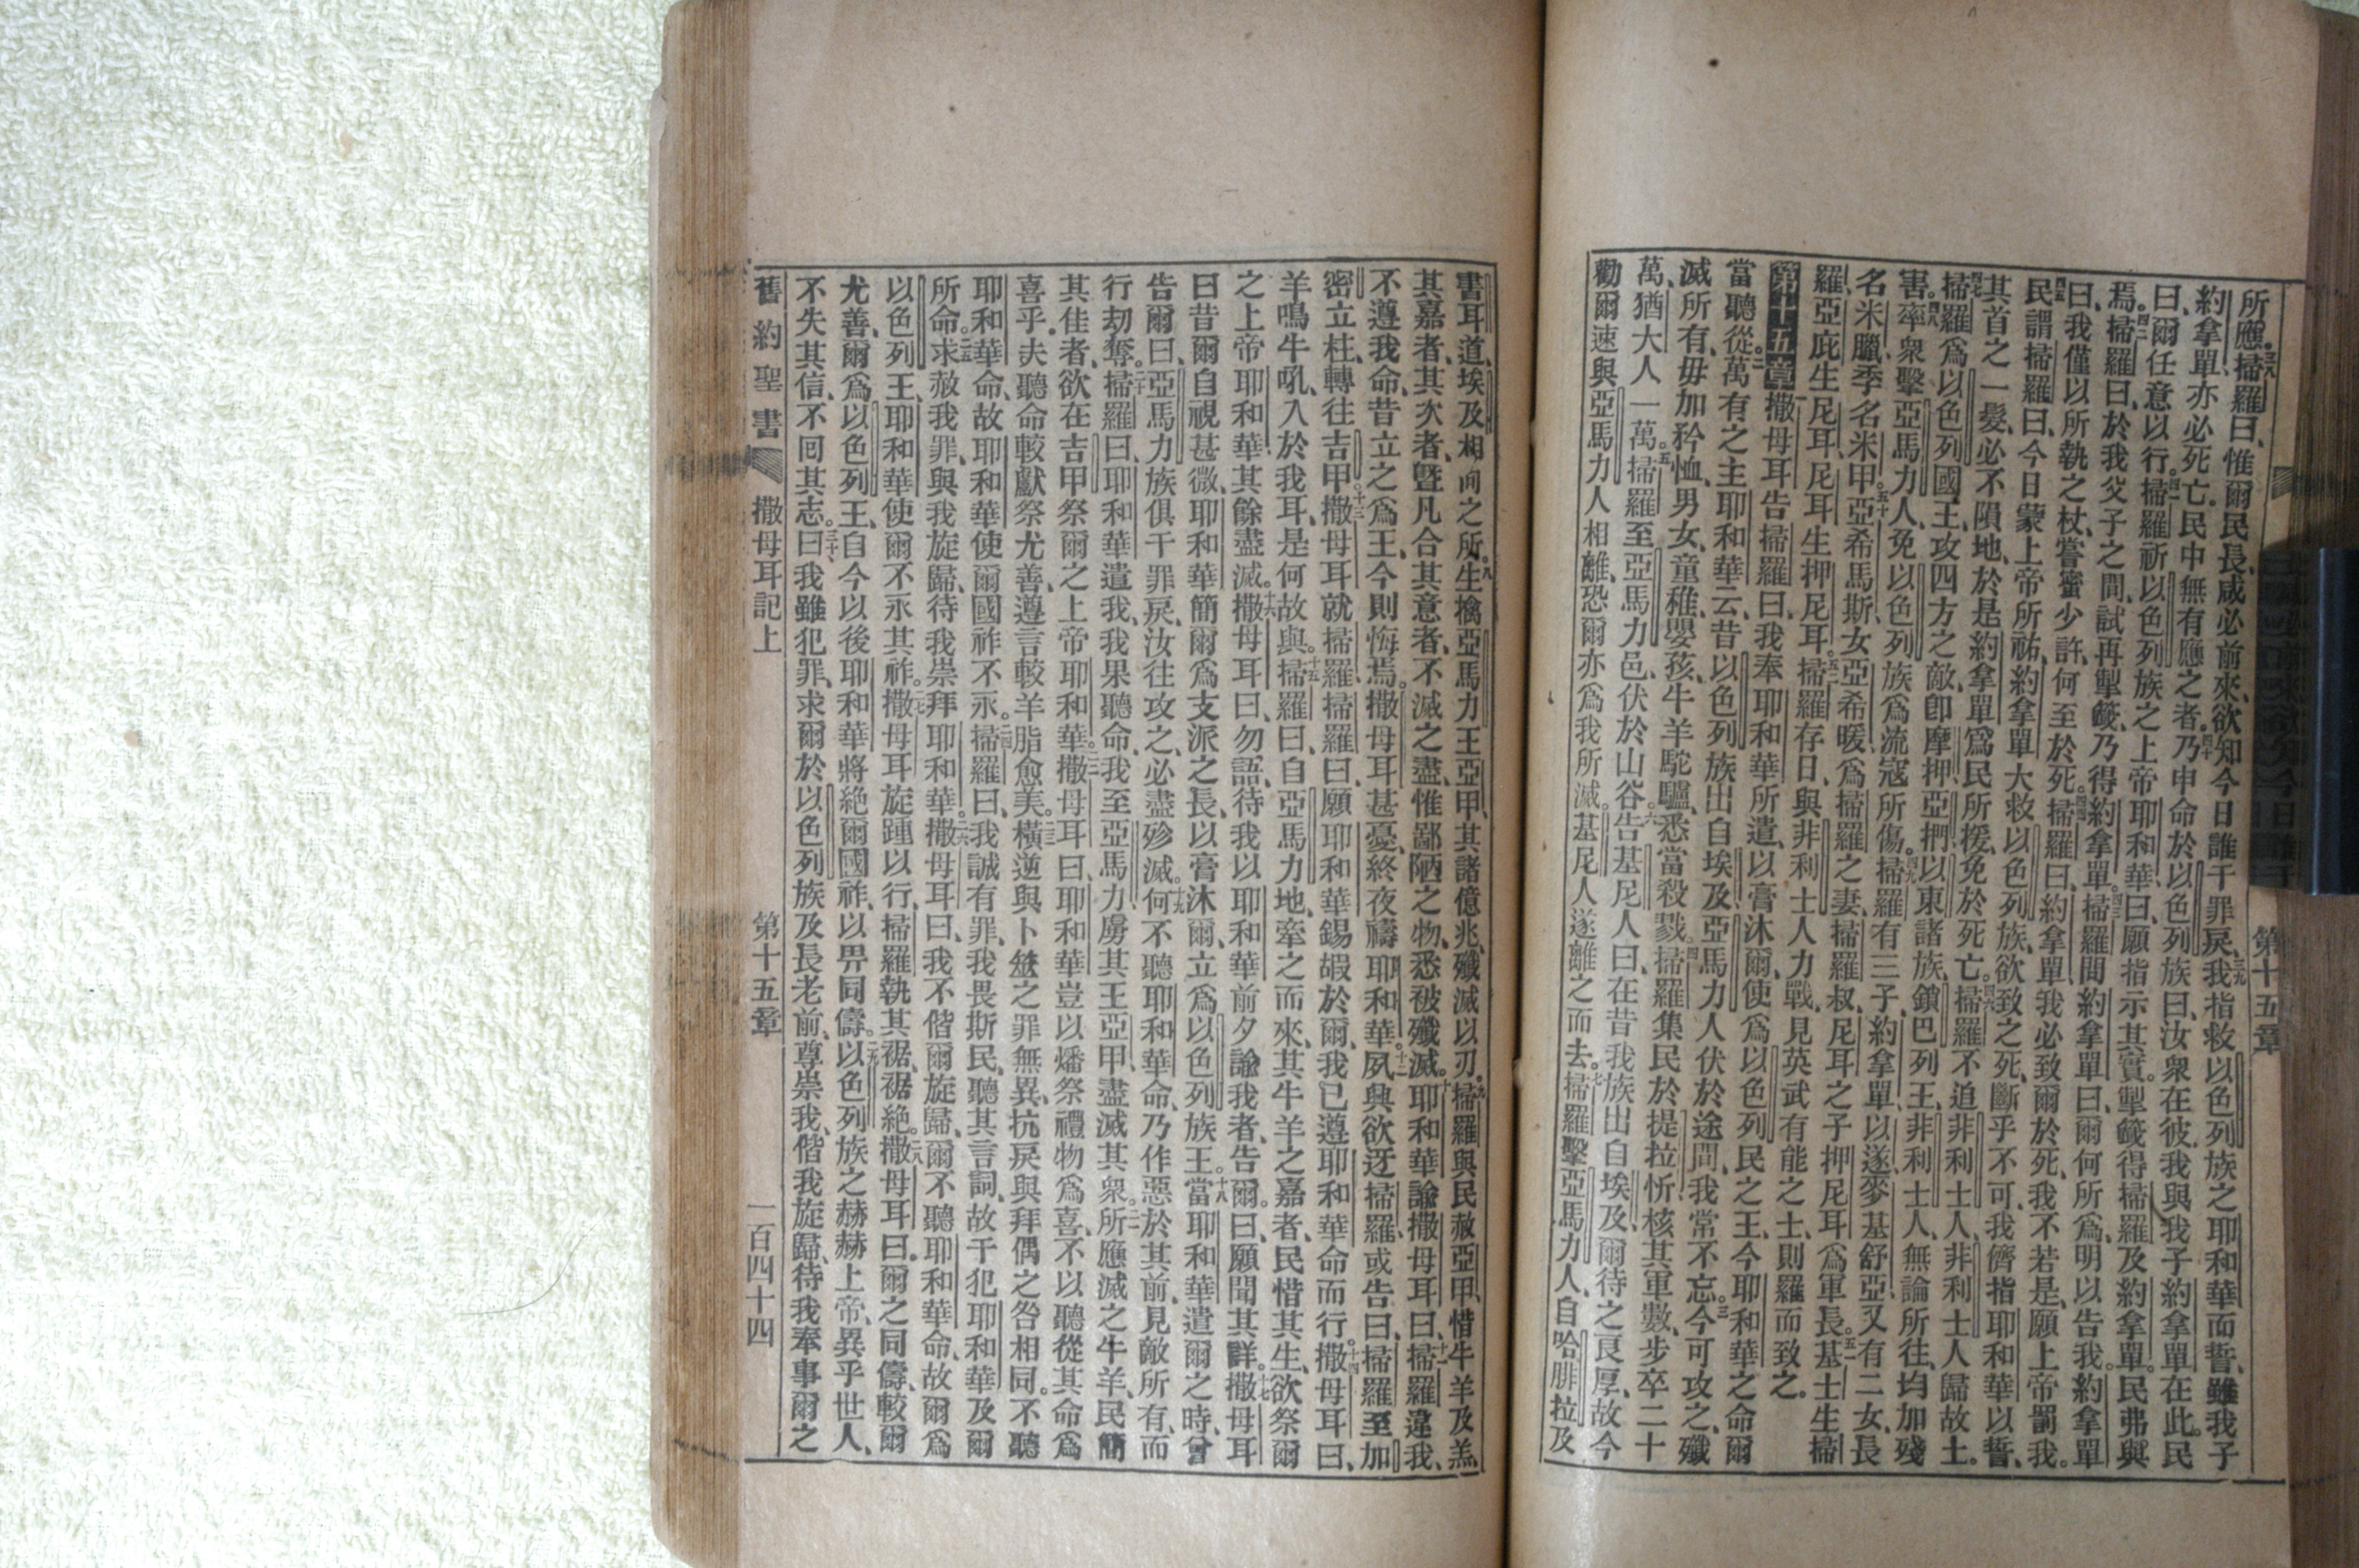 所應、掃羅曰、惟爾民長、咸必前來、欲知今日誰干罪戾、我指救以色列族之耶和華而誓、雖我子
約拿單、亦必死亡、民中無有應之者。乃申命於以色列族曰、汝衆在彼、我與我子約拿單在此。民
曰、爾任意以行。掃羅祈以色列族之上帝耶和華曰、願指示其實。掣籤得掃羅及約拿單。民弗與
焉。掃羅曰、於我父子之間、試再掣籤、乃得約拿單。掃羅問約拿單曰、爾何所爲、明以告我。約拿單
曰、我僅以所執之杖、嘗蜜少許、何至於死。掃羅曰、約拿單、我必致爾於死、我不若是、願上帝罰我。
民謂掃羅曰、今日蒙上帝所祐、約拿單大救以色列族、欲致之死、斷乎不可、我儕指耶和華以誓、
其首之一髮、必不隕地、於是約拿單爲民所援、免於死亡。掃羅不追非利士人、非利士人歸故土。
掃羅爲以色列國王、攻四方之敵、卽摩押、亞捫、以東諸族、鎖巴列王、非利士人、無論所往、均加殘
害。率衆擊亞馬力人、免以色列族爲流寇所傷。掃羅有三子、約拿單、以遂、麥基舒亞、又有二女、長
名米臘、季名米甲。亞希馬斯女亞希暖爲掃羅之妻、掃羅叔尼耳之子押尼耳爲軍長。基士生掃
羅、亞庇生尼耳、尼耳生押尼耳。掃羅存日、與非利士人力戰、見英武有能之士、則羅而致之。
第十五章 撒母耳告掃羅曰、我奉耶和華所遣、以膏沐爾、使爲以色列民之王、今耶和華之命爾
當聽從。萬有之主耶和華云、昔以色列族出自埃及、亞馬力人伏於途間、我常不忘。今可攻之、殲
滅所有、毋加矜恤、男女、童稚、嬰孩、牛羊駝驢、悉當殺戮。掃羅集民於提拉忻、核其軍數、步卒二十
萬、猶大人一萬。掃羅至亞馬力邑、伏於山谷。告基尼人曰、在昔我族出自埃及、爾待之良厚、故今
勸爾速與亞馬力人相離、恐爾亦爲我所滅。基尼人遂離之而去。掃羅擊亞馬力人、自哈腓拉及
第十五章
書耳道、埃及相向之所。生擒亞馬力王亞甲、其諸億兆、殲滅以刃。掃羅與民赦亞甲、惜牛羊及羔、
其嘉者、其次者、曁凡合其意者、不滅之盡、惟鄙陋之物、悉被殲滅。耶和華諭撒母耳曰、掃羅違我、
不遵我命、昔立之爲王、今則悔焉。撒母耳甚憂、終夜禱耶和華。夙興欲迓掃羅、或告曰、掃羅至加
密立柱、轉往吉甲。撒母耳就掃羅、掃羅曰、願耶和華錫嘏於爾、我已遵耶和華命而行。撒母耳曰、
羊鳴牛吼、入於我耳、是何故與。掃羅曰、自亞馬力地、牽之而來、其牛羊之嘉者、民惜其生、欲祭爾
之上帝耶和華、其餘盡滅。撒母耳曰、勿語、待我以耶和華前夕諭我者、告爾。曰、願聞其詳。撒母耳
曰、昔爾自視甚微、耶和華簡爾爲支派之長、以膏沐爾、立爲以色列族王。當耶和華遣爾之時、曾
告爾曰、亞馬力族俱干罪戾、汝往攻之、必盡殄滅。何不聽耶和華命、乃作惡於其前、見敵所有、而
行劫奪。掃羅曰、耶和華遣我、我果聽命、我至亞馬力虜其王亞甲、盡滅其衆。所應滅之牛羊、民簡
其佳者、欲在吉甲祭爾之上帝耶和華。撒母耳曰、耶和華豈以燔祭禮物爲喜、不以聽從其命爲
喜乎。夫聽命較獻祭尤善、遵言較羊脂愈美。橫逆與卜筮之罪無異、抗戾與拜偶之咎相同。不聽
耶和華命、故耶和華使爾國祚不永。掃羅曰、我誠有罪、我畏斯民、聽其言詞、故干犯耶和華及爾
所命。求赦我罪、與我旋歸、待我崇拜耶和華。撒母耳曰、我不偕爾旋歸、爾不聽耶和華命、故爾爲
以色列王、耶和華使爾不永其祚。撒母耳旋踵以行、掃羅執其裾、裾絶。撒母耳曰、爾之同儔、較爾
尤善、爾爲以色列王、自今以後、耶和華將絶爾國祚、以畀同儔。以色列族之赫赫上帝、異乎世人、
不失其信、不回其志。曰、我雖犯罪、求爾於以色列族及長老前、尊崇我、偕我旋歸、待我奉事爾之
舊約聖書 撒母耳記上 第十五章 一百四十四